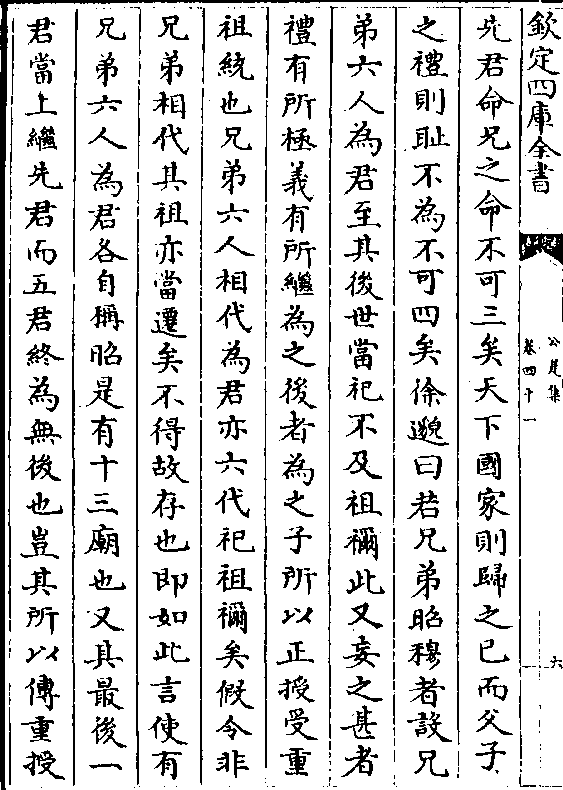 欽定四庫全書
公是集
卷四十一
六
先君命兄之命不可三矣天下國家則歸之已而父子
之禮則耻不為不可四矣徐邈曰若兄弟昭穆者設兄
弟六人為君至其後世當祀不及祖禰此又妄之甚者
禮有所極義有所繼為之後者為之子所以正授受重
祖統也兄弟六人相代為君亦六代祀祖禰矣假令非
兄弟相代其祖亦當遷矣不得故存也即如此言使有
兄弟六人為君各自稱昭是有十三廟也又其最後一
君當上繼先君而五君終為無後也豈其所以傳重授